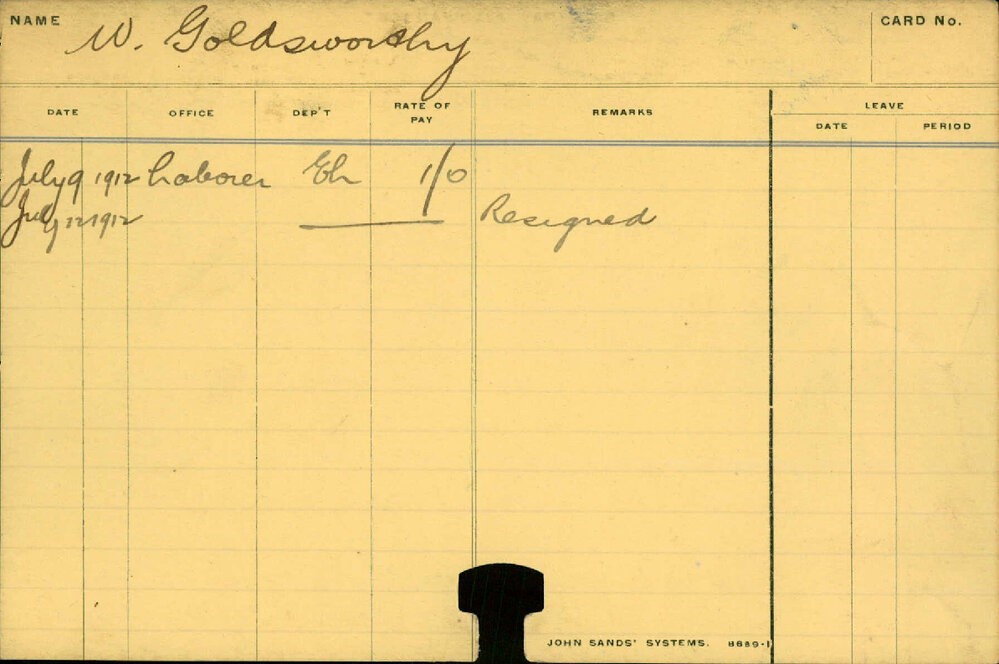 NAME W. Goldsworthy CARD No.
DATE OFFICE DEP'T RATE OF PAY REMARKS LEAVE
DATE PERIOD
July 9 1912 Laborer Eh 1/0
July 12 1912 Resigned
JOHN SANDS' SYSTEMS. 8689-1